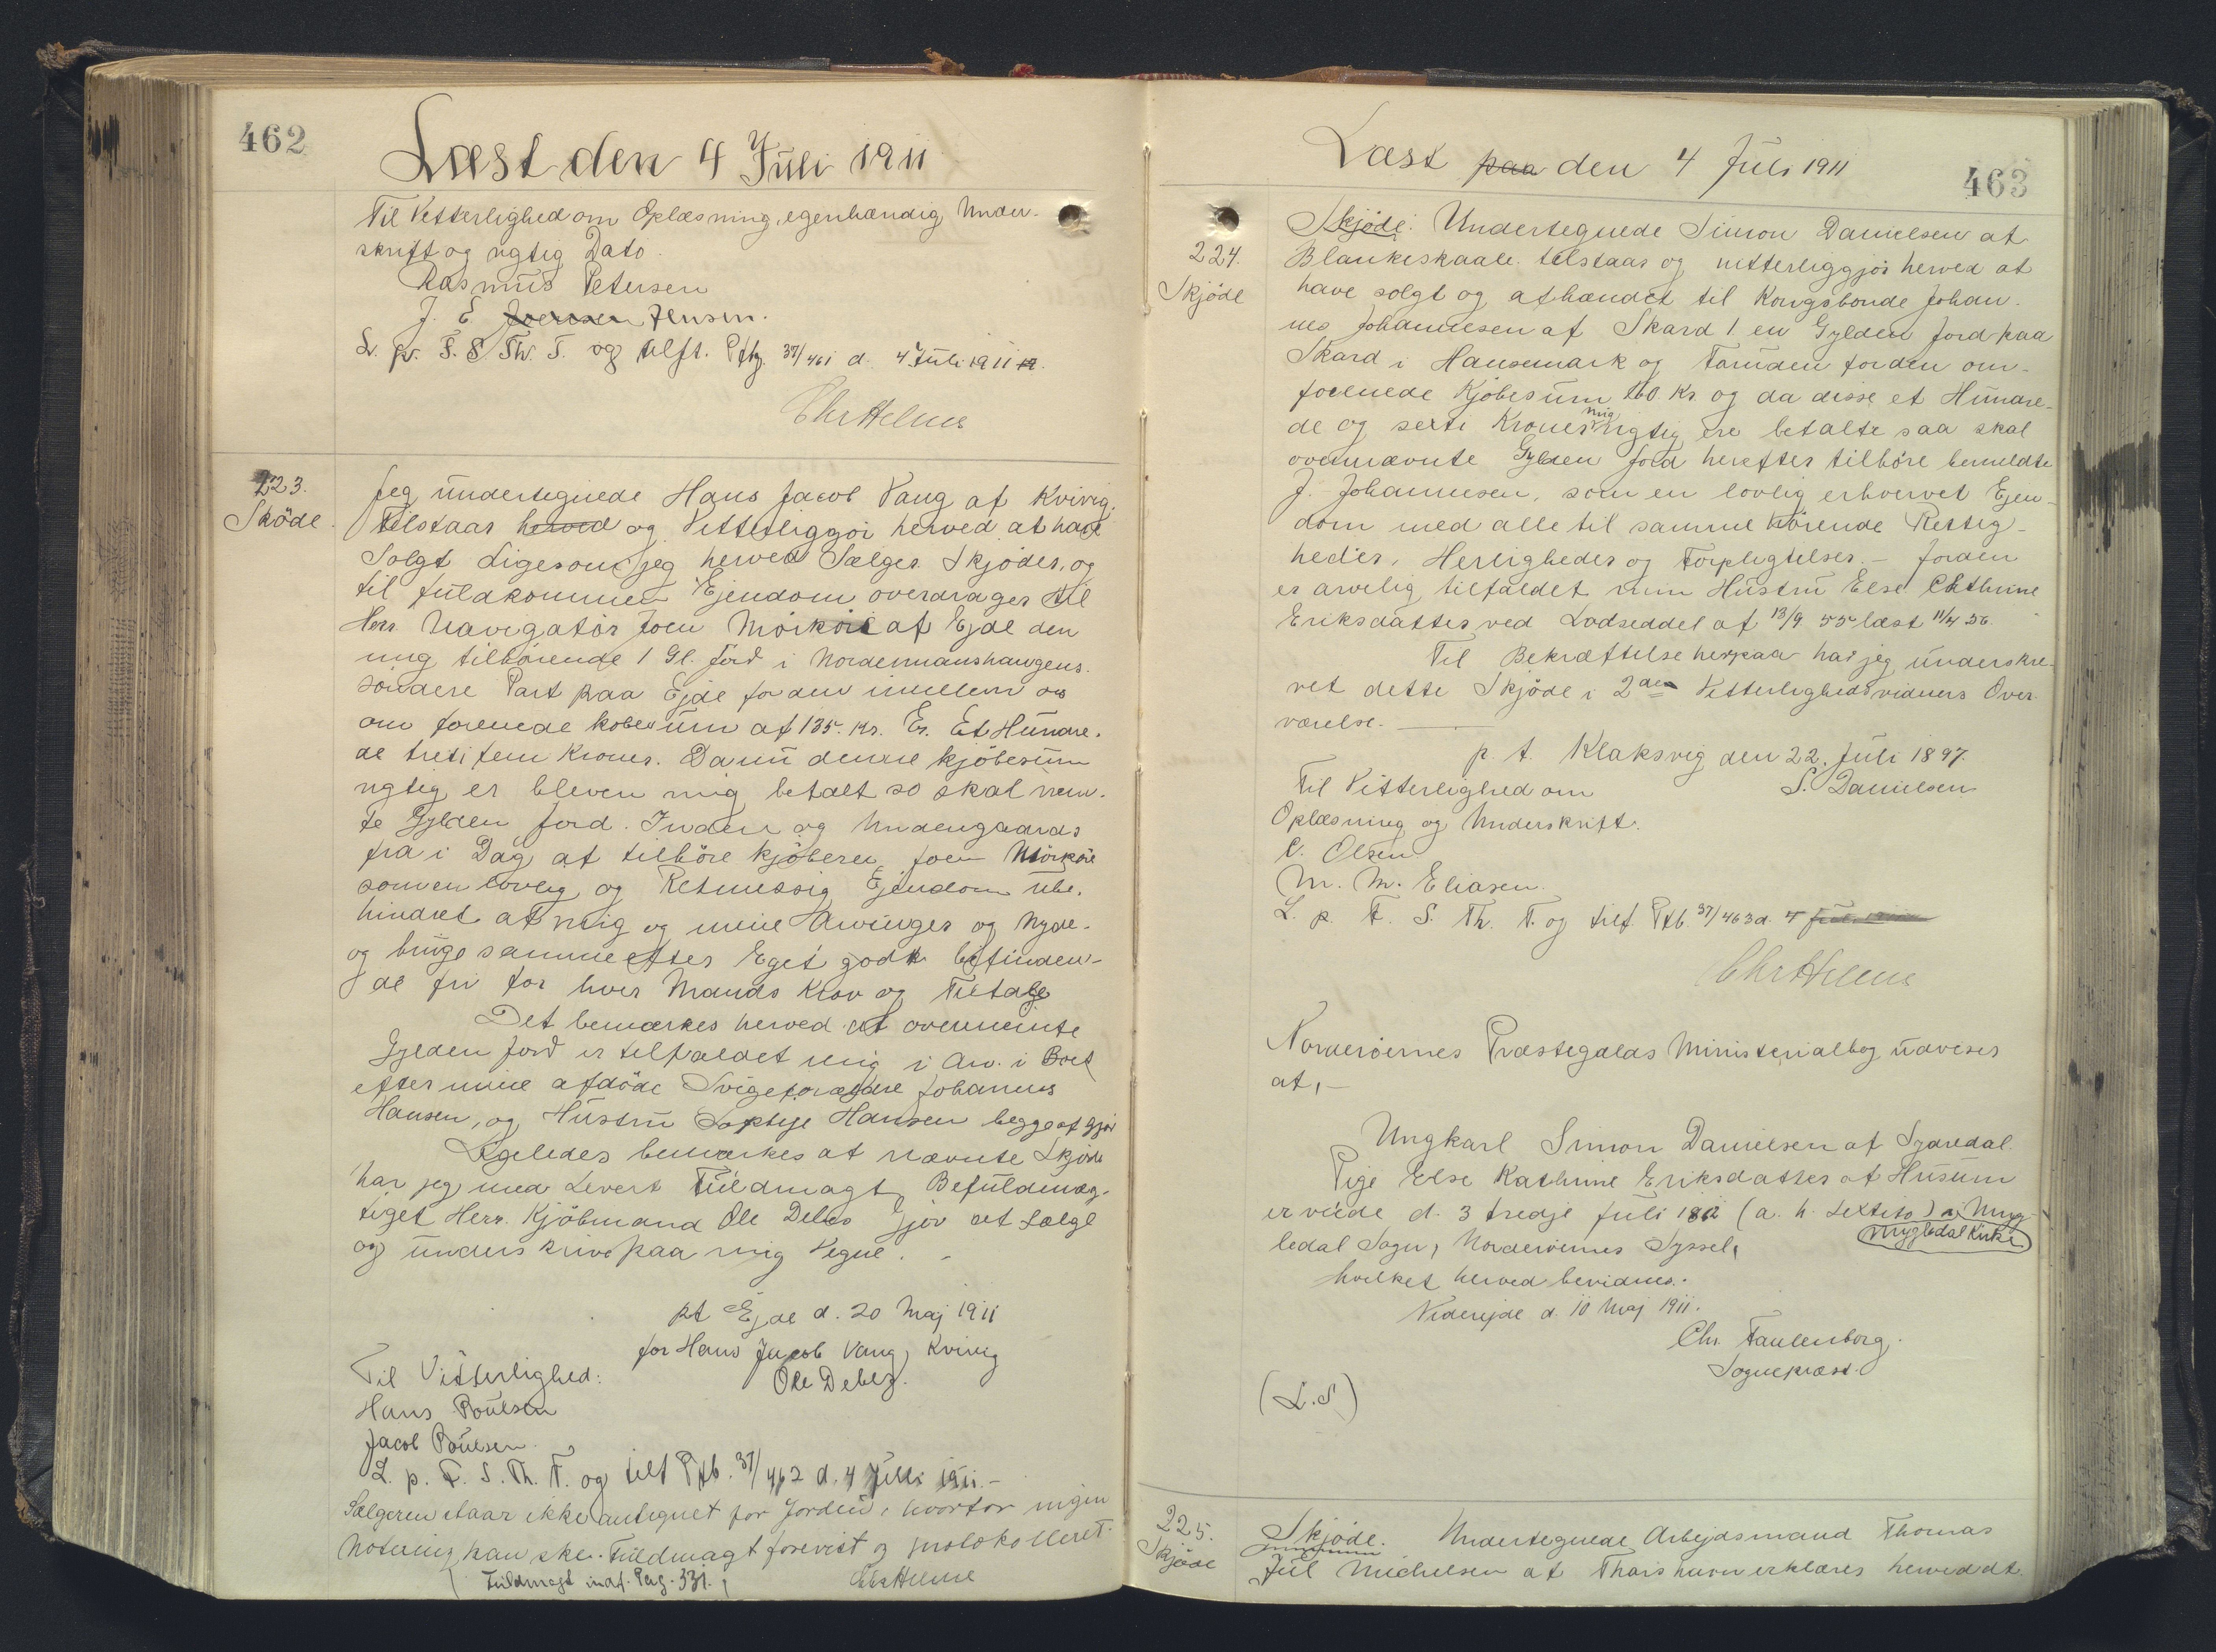 462
Læst den 4 Juli 1911
Til Vetterlighed om Oplæsning, egenhændig Under-
skrift og rigtig Dato.
Rasmus Petersen
J. E Joensen Jensen.
L. p. F. S Th. T. og tilft. Ptb. 37/461 d. 4 Juli 1911
Chr Helms
223.
Sköde
Jeg undertegnede Hans Jacob Vang af Kvivig.
Tilstaar herved og Vetterliggör herved at have
Solgt Ligesom jeg herved Sælger Skjöder, og
til fuldkommen Ejendom overdrager til
Herr Navigatör Joen Mörköre af Ejde den
mig tilhörende 1 Gl. Jord i Nordermanshaugens
söndere Part paa Ejde for den imellem os
om forenede kobesum af 135. Kr. Er. Et Hundre-
de treti fem Kroner. Da nu denne kjöbesum
rigtig er bleven mig betalt so skal nevn-
te Gylden Jord. Inden og Undengaards
fra i Dag af tilhöre kjöberen Joen Mörköre
som en lovlig og Retmessig Ejendom ube-
hindret af mig og mine Arvinger og Nyde-
og bruge samme efter Eget godt befinden-
de fri for hver Mands Krav og Tiltale
Det bemærkes herved at ovennevnte
Gylden Jord er tilfaldet mig i Arv. i Boet
efter mine afdöde Svigeforældre Johannes
Hansen, og Hustru Sophye Hansen begge af Gjov
Ligeledes bemærkes at nævnte Skjöde
har jeg med Levert Fuldmagt Befuldmæg-
tiget Herr. Kjöbmand Ole Debes Gjov at Sælge
og underskrive paa mig Vegne. -
pt Ejde d. 20 Maj 1911
for Hans Jacob Vang, Kvivig
Ole Debes.
Til Vitterlighed:
Hans Poulsen
Jacob Poulsen.
L. p. F. S. Th. T. og tilf Ptb. 37/462 d. 4 Juli 1911.-
Sælgeren staar ikke antegnet for Jorden, hvorfor ingen
Notering kan ske. Fuldmagt forevist og protokolleret.
Fuldmagt indf. Pag. 331.
Chr Helms
Læst paa den 4 Juli 1911
463
224.
Skjöde
Skjöde. Undertegnede Simon Danielsen af
Blankeskaale tilstaar og vitterliggjör herved at
have solgt og afhændet til Kongsbonde Johan-
nes Johannesen af Skard 1 en Gylden Jord paa
Skard i Hausemark og Toruden for den om-
forenede Kjöbesum 160 Kr. og da disse et Hundre-
de og sexti Kroner mig rigtig ere betalte saa skal
ovennævnte Gylden Jord herefter tilhöre bemeldte
J. Johannesen, som en lovlig erhvervet Ejen-
dom med alle til samme hörende Rettig-
heder, Herligheder og Forpligtelser. - Jorden
er arvelig tilfaldet min Hustru Else Cathrine
Eriksdatter ved Lodseddel af 13/9 55 læst 11/4 56.
Til Bekræftelse herpaa har jeg underskre-
vet dette Skjöde i 2den Vitterlighedsvidners Over-
værelse.
p. t. Klaksvig den 22. Juli 1897.
S. Danielsen
Til Vitterlighed om
Oplæsning og Underskrift.
C. Olsen
M. M. Eliasen.
L. p. F. S. Th. T. og tilf. Ptb 37/463 d. 4 Juli 1911
Chr Helms
Norderöernes Præstegælds Ministerialbog udviser
at, -
Ungkarl Simon Danielsen af Syderdal.
Pige Else Kathrine Eriksdatter af Husum
er viede d. 3 tredje Juli 1862 (a. h. Sextito) i Myg-
ledal Sogn, Norderöernes Syssel,
Mygledal Kirke
hvilket herved bevidnes.
Viderejde d. 10 Maj 1911.
Chr. Faulenborg.
Sognepræst.
(L.S.)
225.
Skjöde
Skjöde. Undertegnede Arbejdsmand Thomas
Jul Michelsen af Thorshavn erklærer herved at